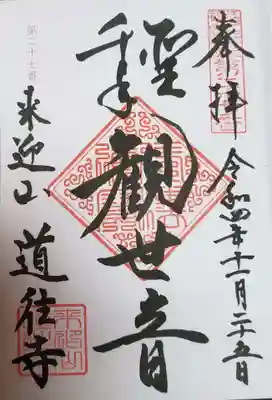 奉拝
令和四年十一月二十五日
聖観世音
千手
第二十七番
来迎山
道往寺